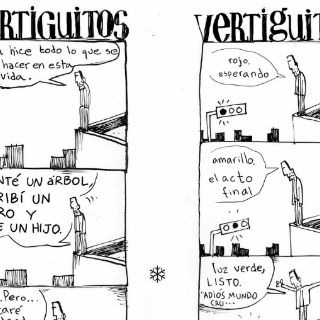 RTIGUITOS
hice todo lo que se
hacer en esta
vida.
NTÉ UN áRBOL,
RIBÍ UN
RO Y
E UN HIJO.
.Pero...
caré
VERTIGUIT
rojo.
esperando
amarillo.
el acto
final
luz verde,
LISTO.
"ADIÓS MUNDO
CRU...